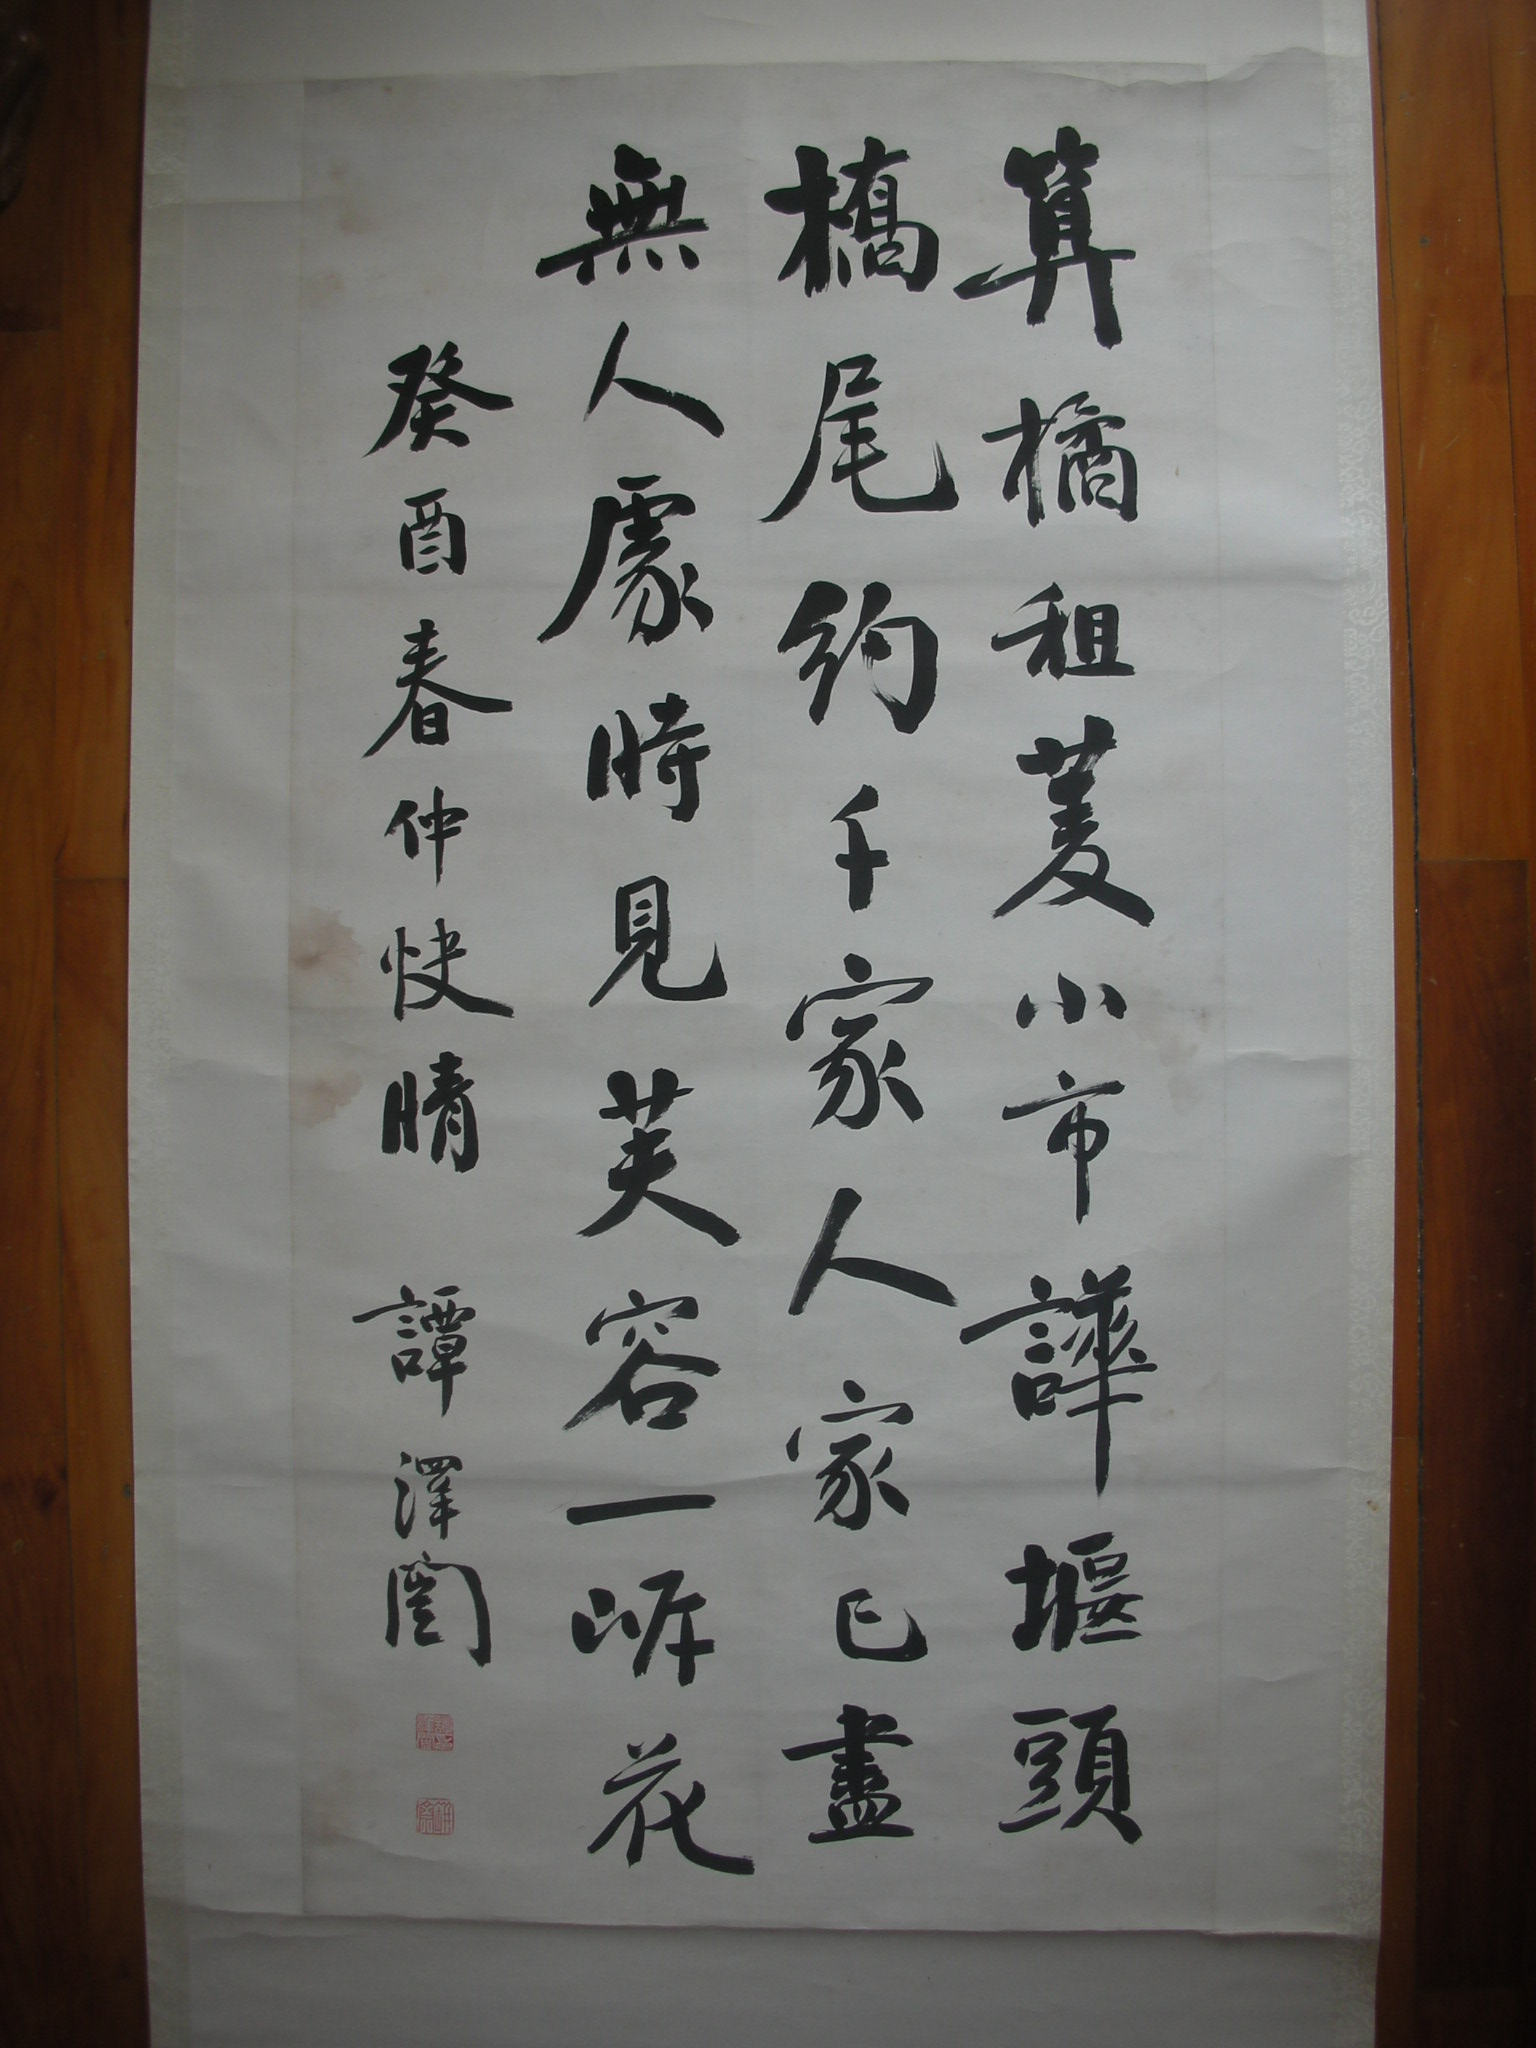 算橘租菱小市譁堰頭
橋尾約千家人家已盡
無人處時見芙容一𣃁花
癸酉春仲快晴 譚澤闓